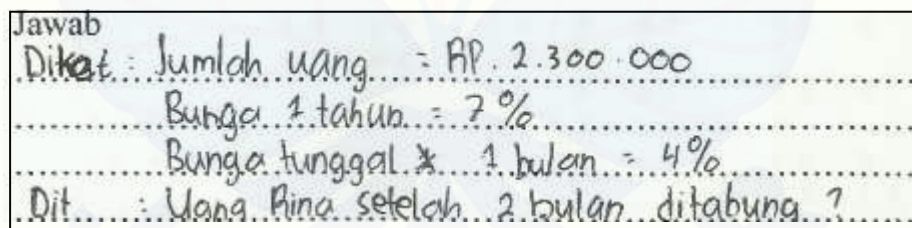 Jawab
Diket : Jumlah uang = RP. 2.300.000
Bunga 1 tahun = 7%
Bunga tunggal 1 bulan = 4%
Dit : Uang Rina setelah 2 bulan ditabung ?